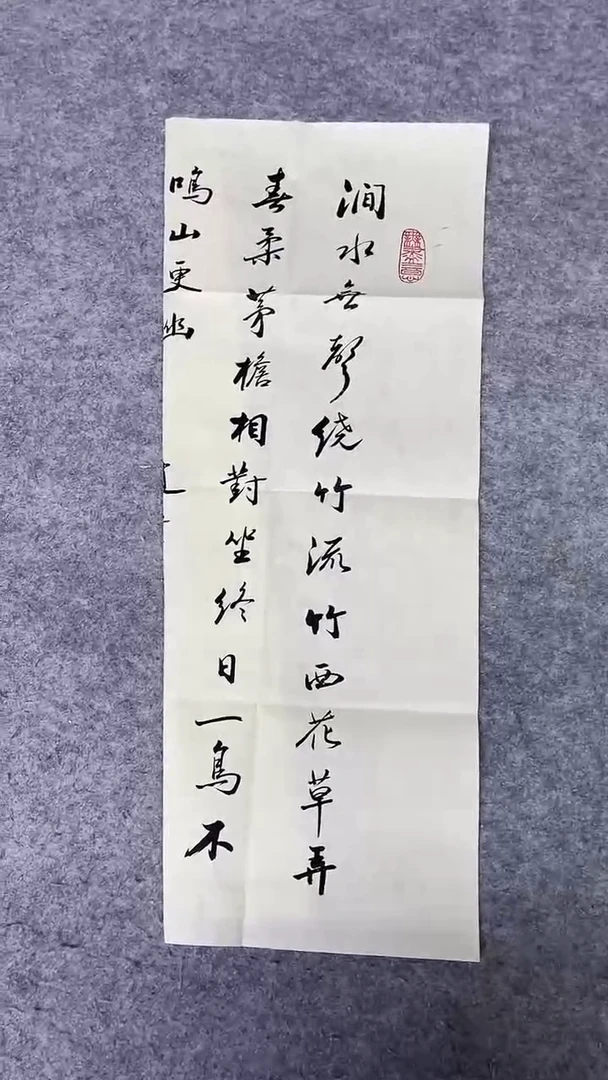 涧水无聲绕竹流竹西花草弄
春柔茅檐相對坐终日一鳥不
鳴山更幽